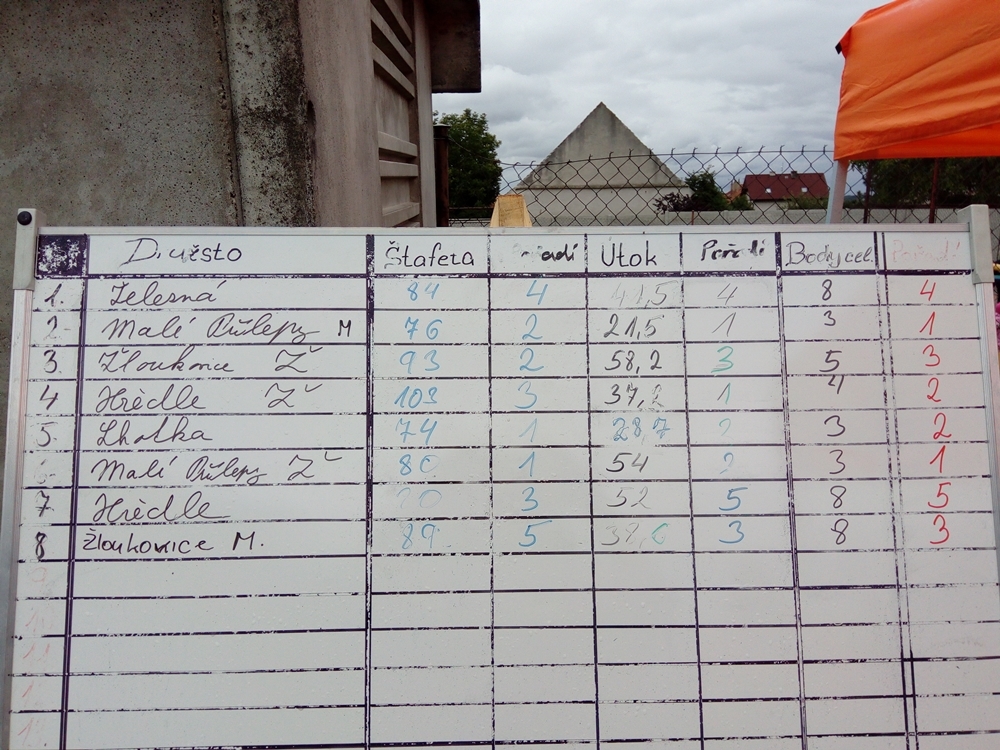 Družsto Štafeta Útok Pořadí Body cel. Pořadí
1. Železná 84 4 41,5 4 8 4
2 Malé Přílepy M 76 2 21,5 1 3 1
3. Žloukovice Ž 93 2 58,2 3 5 3
4 Hředle Ž 103 3 37,2 1 4 2
5. Lhotka 74 1 28,7 2 3 2
Malé Přílepy Ž 80 1 54 2 3 1
7 Hředle 3 52 5 8 5
8 Žloukovice M. 89 5 39,6 3 8 3